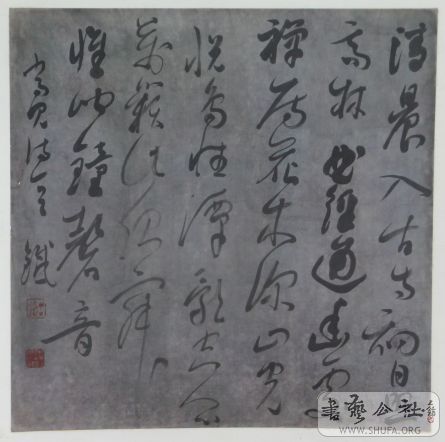 清晨入古寺初日
高林曲徑通幽處
禪房花木深山光
悦鳥性潭影空人心
萬籟此俱寂
惟聞鐘磬音
書藝公社
WWW.SHUFA.ORG